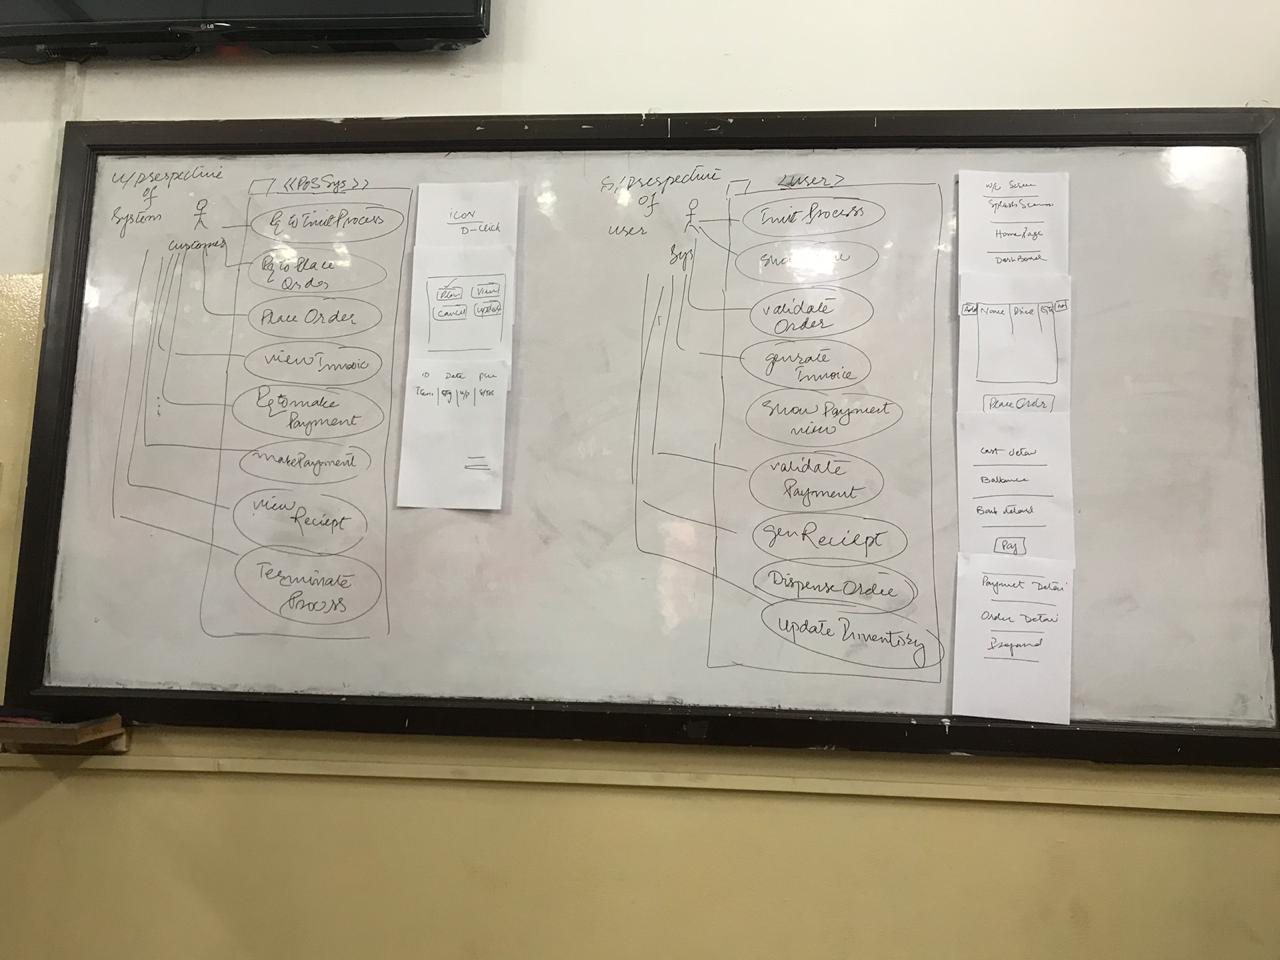 LG
u/psespective
of
System
<<PoSSys>>
customer
Rq to Init Process
Rq to Place
Order
Place Order
view Invoic
Rq to make
Payment
make Payment
view
Reciept
Terminate
Process
icon
D-Click
Plac
View
Cancel
update
ID Date
Item Qty u/p
S/psespective
of
user
<user>
Sys
Init Process
validate
Order
genrate
Invoice
Show Payment
view
validate
Payment
gen Reciept
Dispense Order
update Inventory
w/c Screen
Splash Screen
Home Page
Dash Board
Add
Name
Price
Qty
Place Order
Cast detai
Ballance
Bank detail
Pay
Paymnet Detai
Order Detai